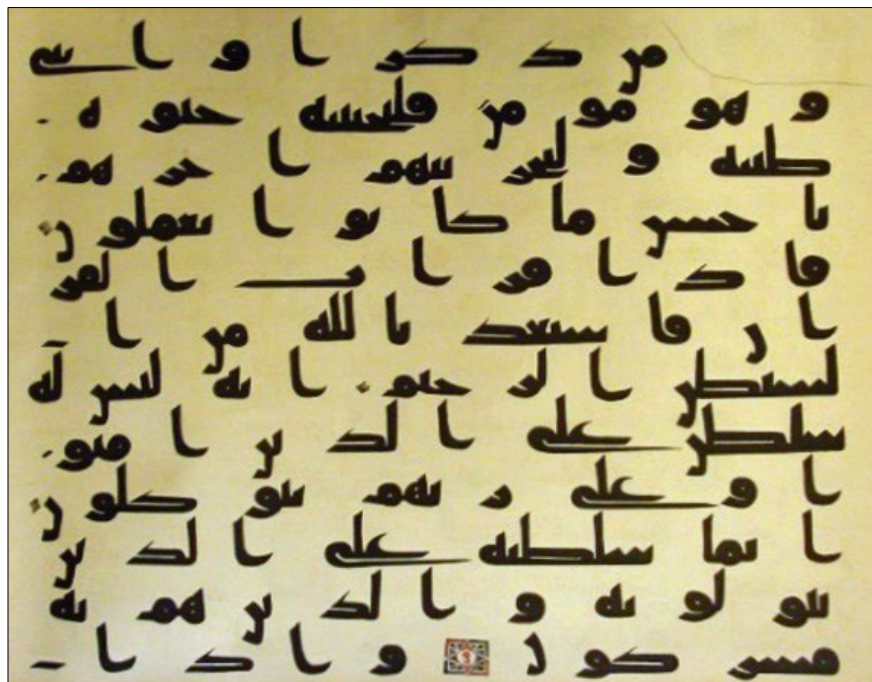 من ذكر او انثى
وهو مومن فلنحيينه حيوة
طيبة ولنجزينهم اجرهم
باحسن ما كانوا يعملون
فاذا قرات القر
ان فاستعذ بالله من ا
لشيطن الرجيم انه ليس له
سلطن على الذين امنو
ا وعلى ربهم يتوكلون
انما سلطنه على الذين
يتولونه والذين هم به
مشركون واذا